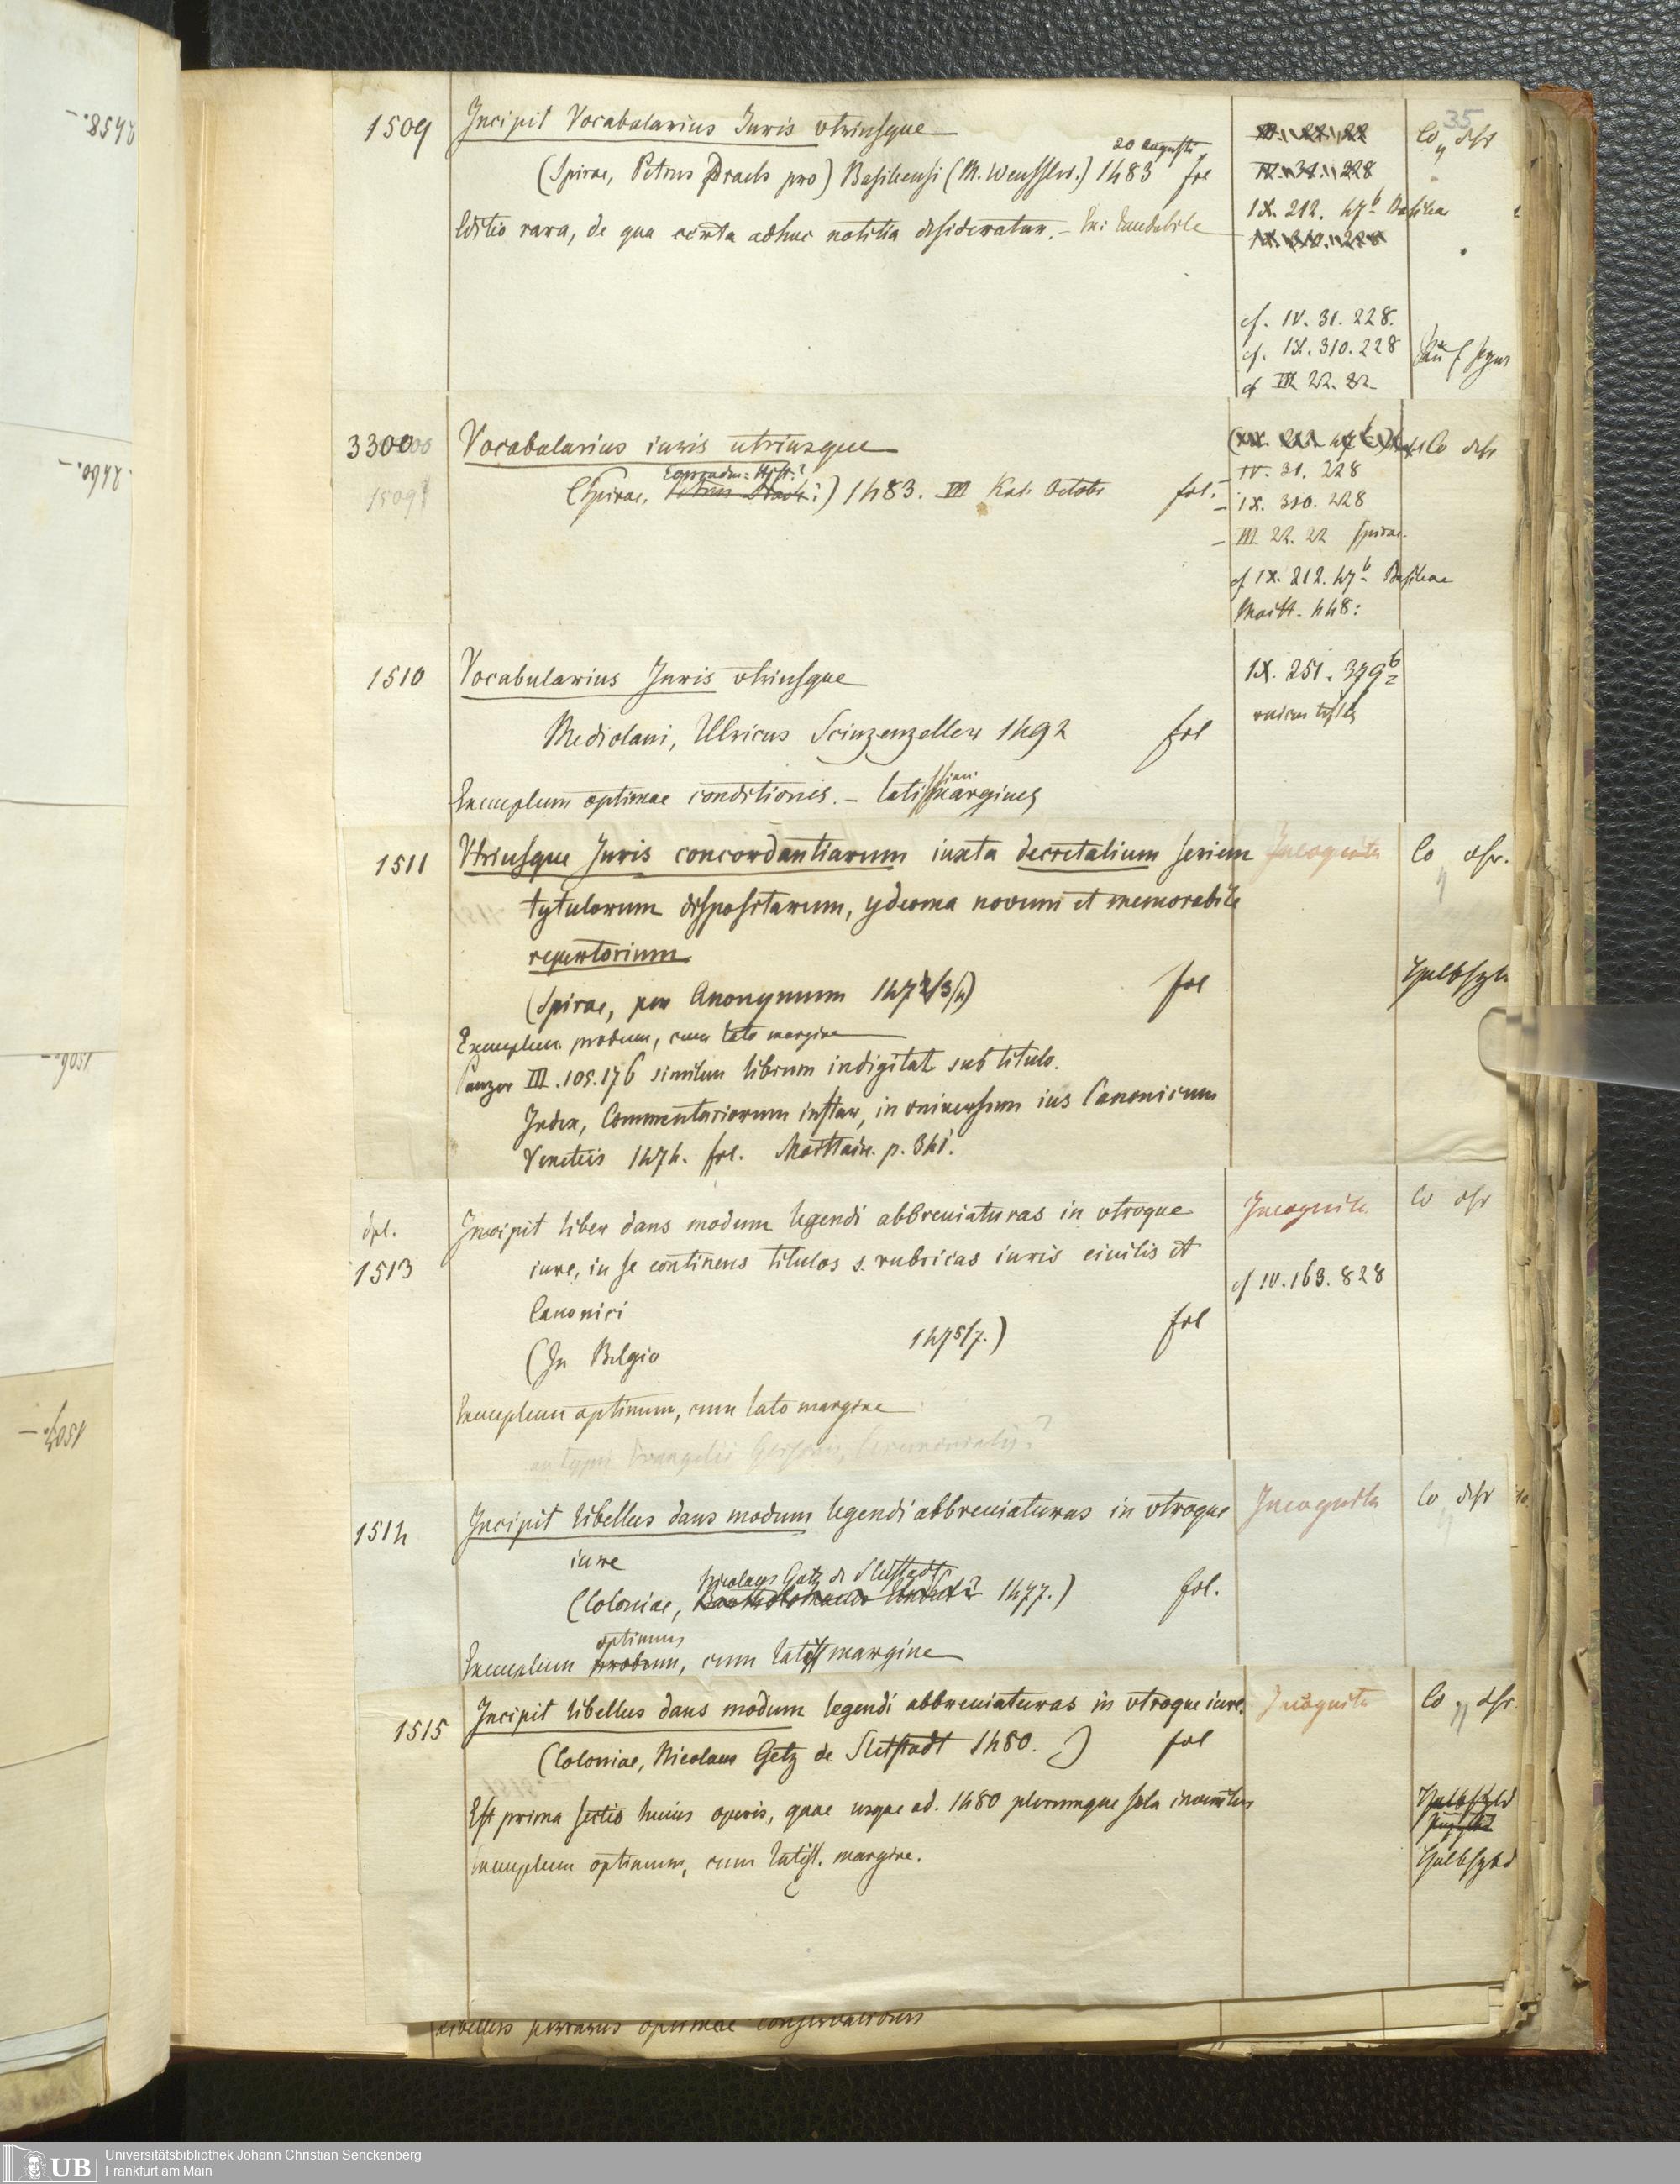 35
1509
Incipit Vocabularius Juris vtriusque
20 Augusti
(Spirae, Petrus Drach pro) Basileensi (M. Wenssler.) 1483 fol
Editio rara, de qua certa adhuc notitia desideratur. —
III. 22. 22
IV. 31. 228
IX. 212. 47b Basilea
IX. 310. 228
cf. IV. 31. 228.
cf. IX. 310. 228
cf III 22. 22
Co
3300
1509
Vocabularius iuris utriusque
(Spirae, 1483. III Kal. Octobr fol.
IV. 31. 228
IX. 310. 228
III 22. 22 Spirae.
cf IX. 212. 47b Basileae
Maitt. 448:
1510
Vocabularius Juris vtriusque
Mediolani, Ulricus Scinzenzeller 1492 fol
Exemplum optimae conditionis. — latissimi margines
IX. 251. 379b
1511
Vtriusque Juris concordantiarum iuxta decretalium seriem
tytulorum dispositarum, ydeoma novum et memorabile
repertorium
(Spirae, per Anonymum 1472/3/4) fol
Exemplum probum, cum lato margine
Panzer III. 105. 176 similem librum indigitat sub titulo.
Index, Commentariorum instar, in vniversum ius Canonicum
Venetiis 1474. fol. Maittaire. p. 341.
Incognita
Co
dpl.
1513
Incipit liber dans modum legendi abbreuiaturas in vtroque
iure, in se continens titulos s. rubricas iuris ciuilis et
Canonici
(In Belgio 1475/7.) fol
Exemplum optimum, cum lato margine
Incognita
cf IV. 163. 828
Co
1514
Incipit libellus dans modum legendi abbreuiaturas in vtroque
iure
Nicolaus Gotz de Sletstadt
(Coloniae, 1477.) fol.
optimum
Exemplum probum, cum latiss margine
Incognita
Co
1515
Incipit libellus dans modum legendi abbreuiaturas in vtroque iure.
(Coloniae, Nicolaus Getz de Sletstadt 1480. ) fol
Est prima sectio huius operis, quae usque ad. 1480 plerumque sola invenitur
Exemplum optimum, cum latiss. margine.
Incognita
Co
libellus perrarus optimae conservationis
2458.—
2460.—
1506.—
1507.—
UB
Universitätsbibliothek Johann Christian Senckenberg
Frankfurt am Main